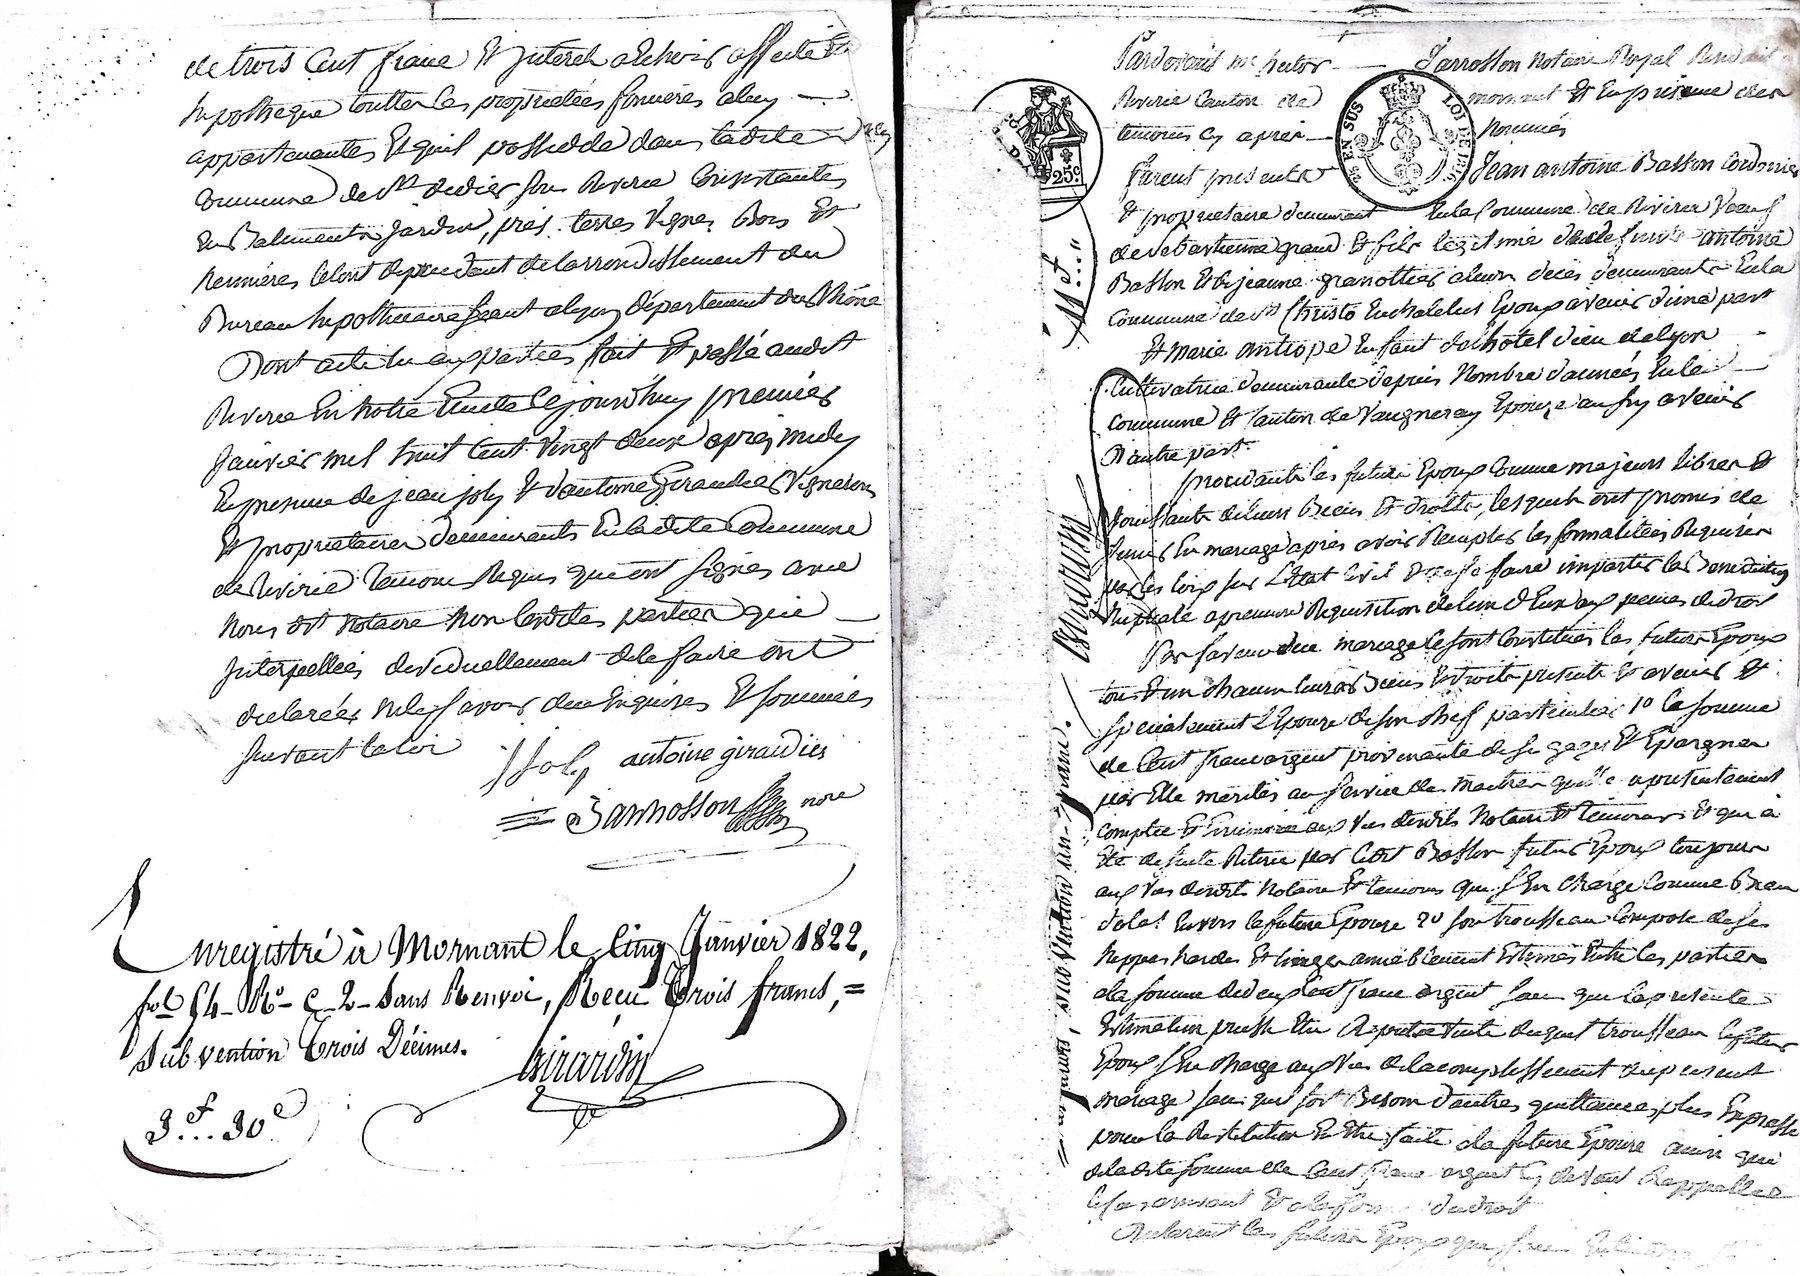 de trois Cent franc Et Interet a Echoir affecte Et
hypotheque touttes les proprietées foncieres a luy
appartenantes Et quil possedde dans ladite
commune de St didier sous Riverie Consistantes
En Batiments Jardin, prés, terres Vignes Bois Et
dependant de larrondissement du
Bureau hypothecaire seant a lyon département du Rhône
Dont acte lu aux parties fait Et passé audit
Riverie En notre Etude Cejourdhuy premier
Janvier mil huit Cent Vingt deux apres midy
En presence de jean joly Et dantoine Giraudier Vignerons
Et proprietaires demeurants En ladite Commune
de Riverie temoins Requis qui ont signés avec
Nous dt Notaire Non lesdites parties qui
Interpellées de le faire ont
declarées ne le savoir de ce Enquises Et sommées
suivant la loi
J Joly antoine giraudier
Jarrosson nore
Enregistré à Mornant le Cinq Janvier 1822,
fol 54 Ro C 2 Sans Renvoi, Reçu Trois francs,
Subvention Trois Décimes.
Girardin
3f...30c
Pardevant me hector Jarrosson Notaire Royal Residant a
Riverie Canton de mornant Et En presence des
temoins cy après Nommés
25 EN SUS
LOI DE 1816
25c
furent presents Jean antoine Basson Cordonier
Et proprietaire demeurant En la Commune de Riverie Veuf
de sebastienne Et fils legitime de defunt antoine
Basson Et de jeanne demeurante En la
Commune de St Christo En chatelus Epoux avenir d'une part
Et Marie antiope Enfant de l'hôtel dieu de lyon
Cultivatrice demeurante depuis Nombre d'années En la
Commune Et Canton de Vaugneray Epouse aussy avenir
D'autre part.
procedants les futurs Epoux Comme majeurs libres Et
jouissants de leurs Biens Et droits, lesquels ont promis de
sunir En mariage après avoir Remplis les formalitées Requises
par les loix sur L'Etat Civil Et de se faire impartir la Benediction
Nuptiale a premiere Requisition de lun d'Eux aux peines de droit
Par faveur du mariage se sont Constitués les futurs Epoux
tous Et un chacun leurs Biens Et droits presents Et avenir Et
specialement L'Epouse de son chef particulier 1o la somme
de Cent franc argent provenante de ses gages Et Epargnes
par Elle merités au service des maitres quelle a presentement
comptée Et aux vues desdits Notaire Et temoins Et qui a
Eté de suite Retirée par ledit Basson futur Epoux toujours
aux vues desdits Notaire Et temoins qui s'En charge Comme Bien
dotal Envers la future Epouse 2o son trousseau Composé de ses
Nippes hardes Et linges amiablement Estimés Entre les parties
a la somme de deux Cent franc argent sans que la presente
Estimation puisse Etre Reputée Vente duquel trousseau le futur
Epoux s'En charge aux vues de laccomplissement du present
mariage sans quil soit Besoin d'autres quittances plus Expresse
pour la Restitution En Etre faite a la future Epouse ainsi que
de ladite somme de Cent franc argent
Et a la forme du droit
Declarent les futurs Epoux que
11f..."
Girardin
subvention un franc.